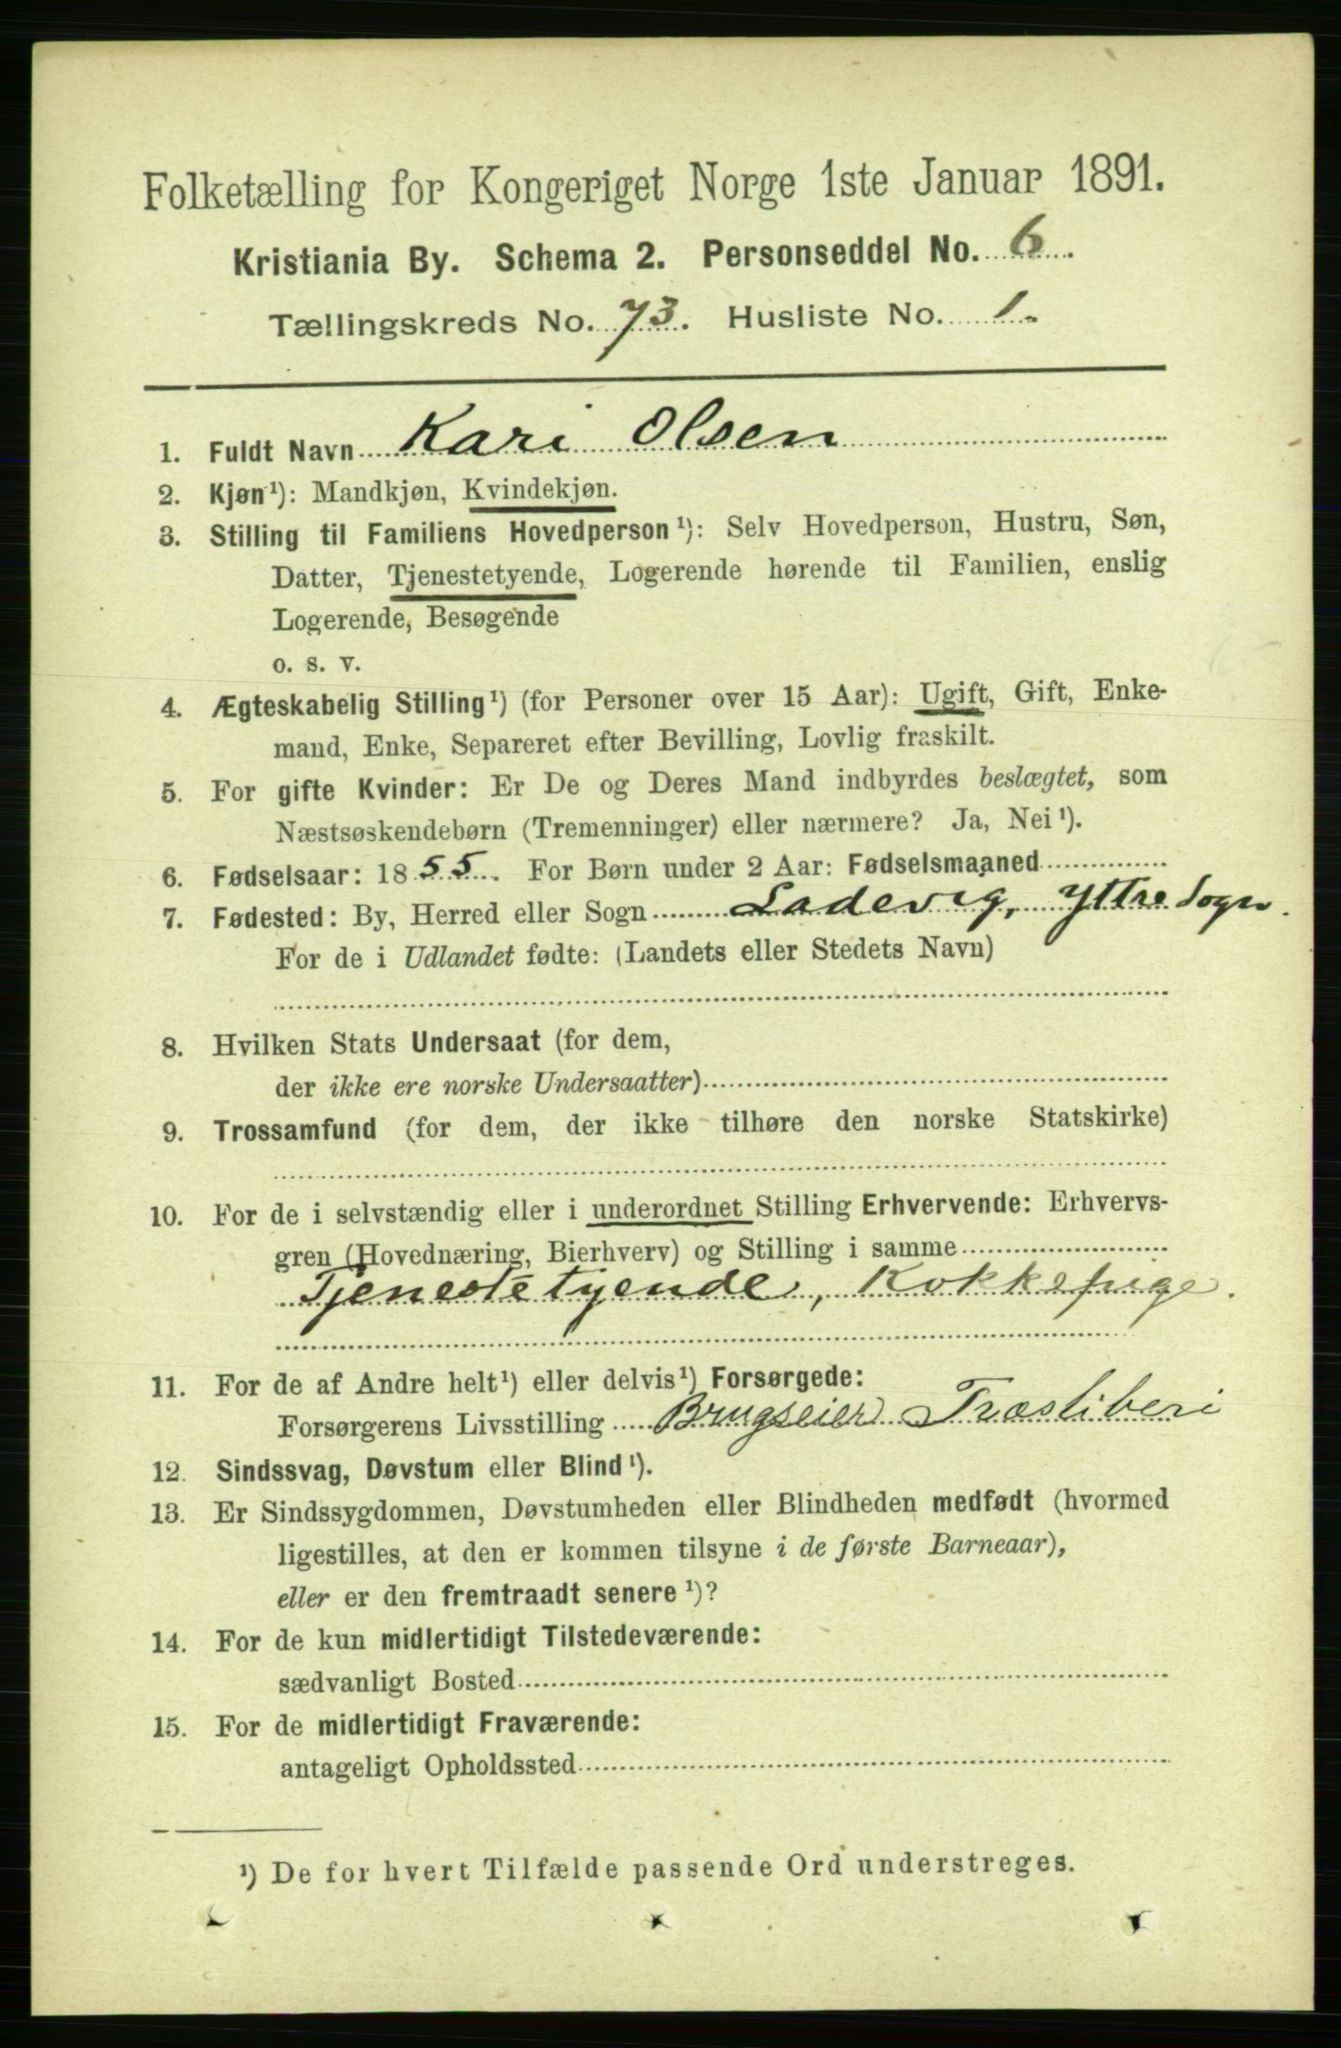 Folketælling for Kongeriget Norge 1ste Januar 1891.
Kristiania By. Schema 2. Personseddel No. 6.
Tællingskreds No. 73. Husliste No. 1.
1. Fuldt Navn Kari Olsen
2. Kjøn¹): Mandkjøn, Kvindekjøn.
3. Stilling til Familiens Hovedperson¹): Selv Hovedperson, Hustru, Søn,
Datter, Tjenestetyende, Logerende hørende til Familien, enslig
Logerende, Besøgende
o. s. v.
4. Ægteskabelig Stilling¹) (for Personer over 15 Aar): Ugift, Gift, Enke-
mand, Enke, Separeret efter Bevilling, Lovlig fraskilt.
5. For gifte Kvinder: Er De og Deres Mand indbyrdes beslægtet, som
Næstsøskendebørn (Tremenninger) eller nærmere? Ja, Nei¹).
6. Fødselsaar: 1855. For Børn under 2 Aar: Fødselsmaaned
7. Fødested: By, Herred eller Sogn Ladevig, Yttre Sogn.
For de i Udlandet fødte: (Landets eller Stedets Navn)
8. Hvilken Stats Undersaat (for dem,
der ikke ere norske Undersaatter)
9. Trossamfund (for dem, der ikke tilhøre den norske Statskirke)
10. For de i selvstændig eller i underordnet Stilling Erhvervende: Erhvervs-
gren (Hovednæring, Bierhverv) og Stilling i samme
Tjenestetyende, Kokkepige.
11. For de af Andre helt¹) eller delvis¹) Forsørgede:
Forsørgerens Livsstilling Brugseier Træsliberi
12. Sindssvag, Døvstum eller Blind¹).
13. Er Sindssygdommen, Døvstumheden eller Blindheden medfødt (hvormed
ligestilles, at den er kommen tilsyne i de første Barneaar),
eller er den fremtraadt senere¹)?
14. For de kun midlertidigt Tilstedeværende:
sædvanligt Bosted
15. For de midlertidigt Fraværende:
antageligt Opholdssted
¹) De for hvert Tilfælde passende Ord understreges.